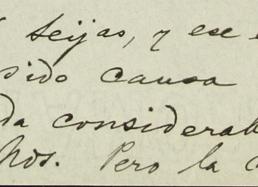 Seijas, y ese
sido causa
da considerabl
Pero la